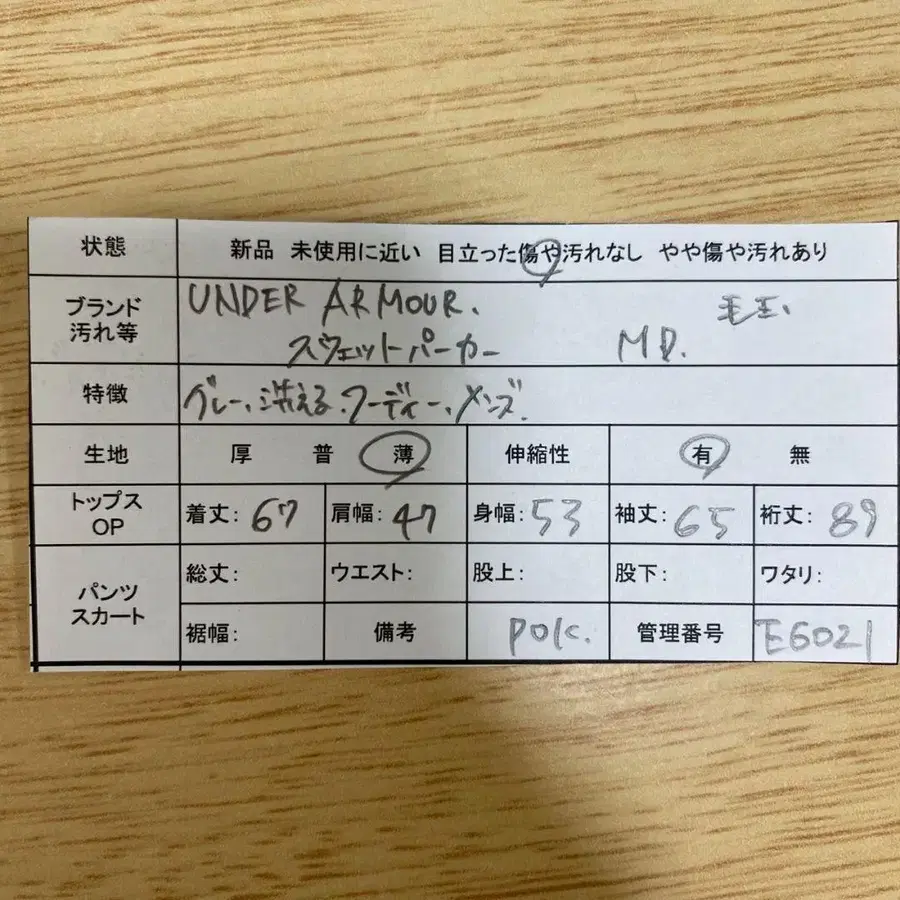 状態 新品 未使用に近い 目立った傷や汚れなし やや傷や汚れあり
ブランド 汚れ等 UNDER ARMOUR.
スウェットパーカー MD.
特徴 グレー、洗える、フーディー、メンズ.
生地 厚 普 薄 伸縮性 有 無
トップス OP 着丈: 67 肩幅: 47 身幅: 53 袖丈: 65 裄丈: 89
パンツ スカート 総丈: ウエスト: 股上: 股下: ワタリ:
裾幅: 備考 管理番号 E6021